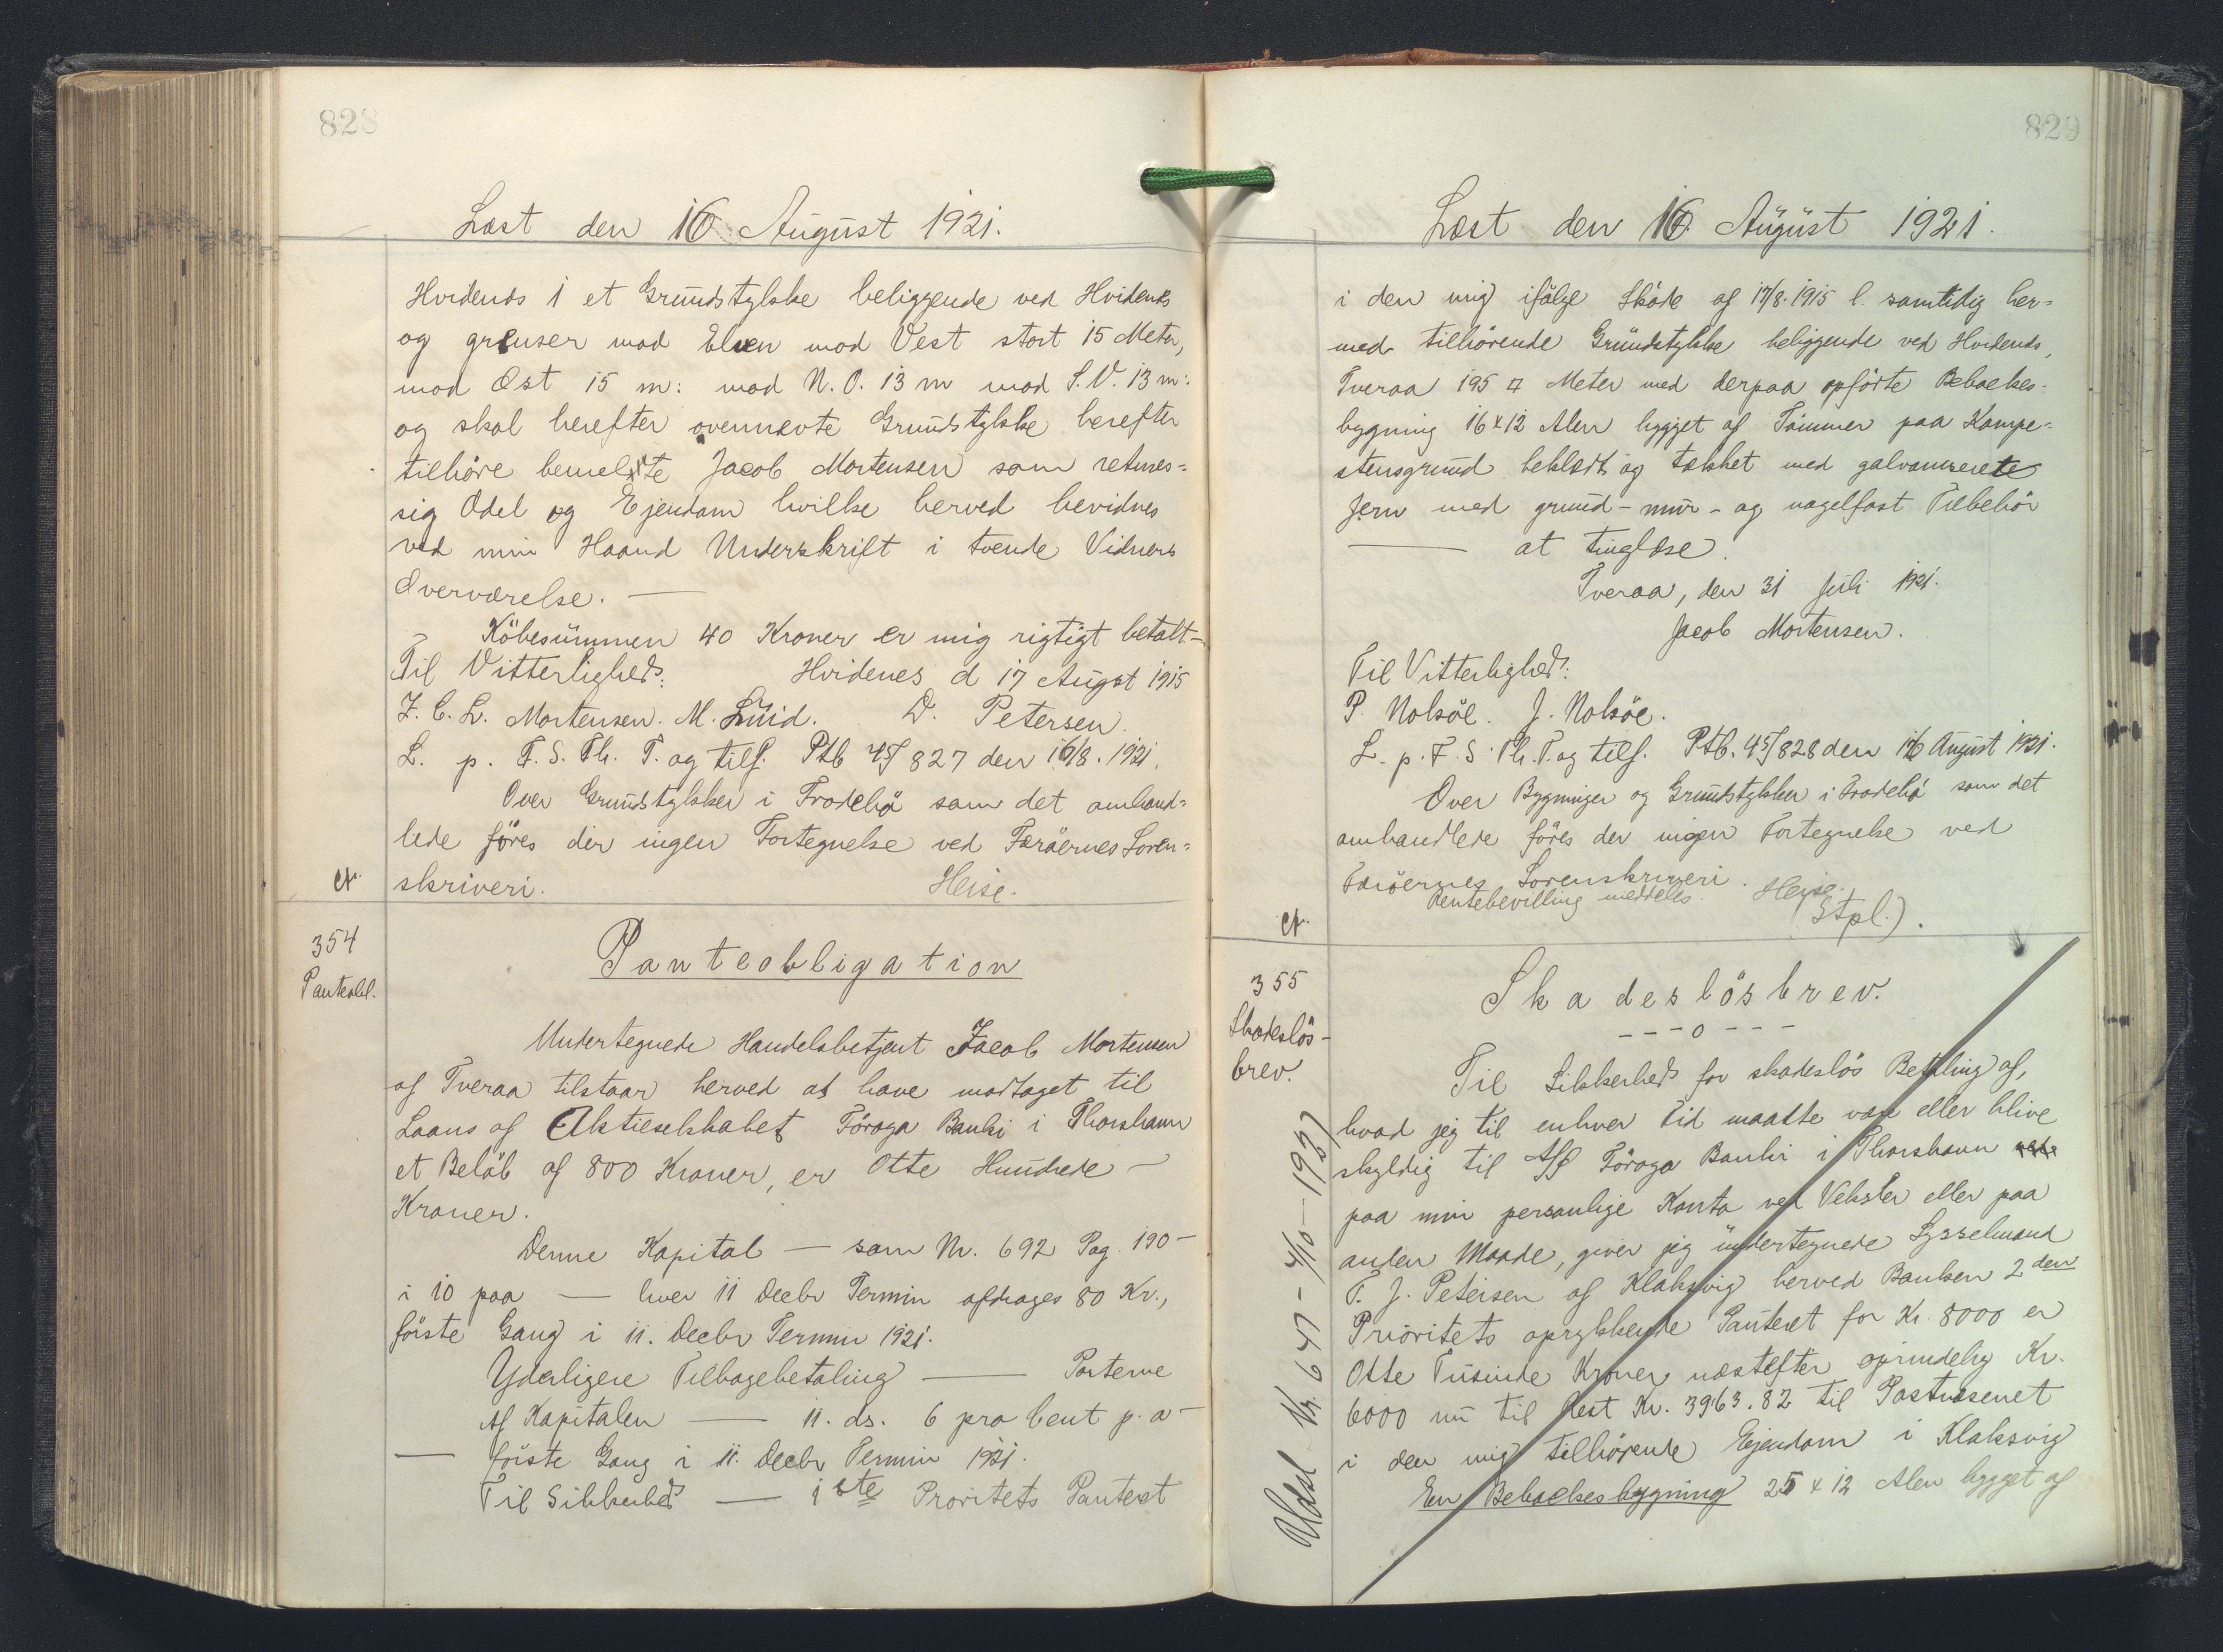 828
Læst den 16 August 1921.
Hvidenös 1 et Grundstykke beliggende ved Hvidenæs
og grenser mod Elven mod Vest stort 15 Meter,
mod Øst 15 m: mod N.O. 13 m mod S.V. 13 m:
og skal herefter ovennevte Grundstykke herefter
tilhöre bemeldte Jacob Mortensen som retmes=
sig Odel og Ejendom hvilke herved bevidnes
ved min Haand Underskrift i tvende Vidners
Overværelse. —
Köbesummen 40 Kroner er mig rigtigt betalt.—
Til Vitterlighed: Hvidenes d 17 August 1915
J. C. L. Mortensen. M. Lüid. D. Petersen.
L. p. F. S. Th. T. og tilf. Ptb 45/827 den 16/8. 1921.
Over Grundstykker i Tradehö som det omhand=
lede föres der ingen Fortegnelse ved Færöernes Soren=
skriveri. Heise.
ct.
354
Panteobl.
Panteobligation
Undertegnede Handelsbetjent Jacob Mortensen
af Tveraa tilstaar herved at have modtaget til
Laans af Aktieselskabet Föroya Banki i Thorshavn
et Belöb af 800 Kroner, er Otte Hundrede —
Kroner.
Denne Kapital — som Nr. 692 Pag. 190 —
i 10 paa — hver 11 Decbr Termin afdrages 80 Kr.,
förste Gang i 11. Decbr Termin 1921.
Yderligere Tilbagebetaling — Parterne
Af Kapitalen — 11. ds. 6 pro Cent p. a —
— förste Gang i 11. Decbr Termin 1921.
Til Sikkerhed — 1ste Prioritets Panteret
829
Læst den 16 August 1921.
i den mig ifölge Sköde af 17/8. 1915 l. samtidig her=
med tilhörende Grundstykke beliggende ved Hvidenæs,
Tveraa 195 □ Meter med derpaa opförte Beboelses=
bygning 16 x 12 Alen bygget af Tömmer paa Kampe=
stensgrund beklædt og tækket med galvaniserete
Jern med grund- mur- og nagelfast Tilbehör
— at tinglæse.
Tveraa, den 31 Juli 1921.
Jacob Mortensen.
Til Vitterlighed:
P. Nolsöe. J. Nolsöe.
L. p. F. S. Th. T. og tilf. Ptb. 45/828 den 16 August 1921.
Over Bygninger og Grundstykker i Tradehö som det
omhandlede föres der ingen Fortegnelse ved
Færöernes Sorenskriveri. Heise.
Rentebevilling meddeles. (Stpl.).
ct.
355
Skadeslös-
brev.
Udsl Nr. 647 - 4/10 — 1937
Skadeslösbrev.
---o---
Til Sikkerhed for skadeslös Betaling af,
hvad jeg til enhver Tid maatte være eller blive
skyldig til A/S Föroya Banki i Thorshavn
paa min personlige Konto ved Veksler eller paa
anden Maade, giver jeg undertegnede Sysselmand
P. J. Petersen af Klaksvig herved Banken 2den
Prioritets oprykkende Panteret for Kr. 8000 er
Otte Tusinde Kroner næstefter oprindelig Kr.
6000 nu til Rest Kr. 3963.82 til Postvæsenet
i den mig tilhörende Ejendom i Klaksvig
En Beboelsesbygning 25 x 12 Alen bygget af